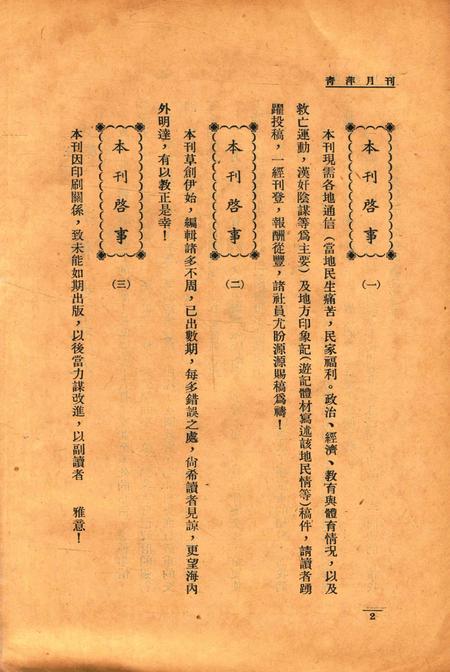 刊月萍青
本刊啓事
(一)
本刊現需各地通信(當地民生痛苦,民家福利。政治、經濟、教育與體育情况,以及
救亡運動,漢奸陰謀等爲主要)及地方印象記(遊記體材寫述該地民情等)稿件,請讀者踴
躍投稿,一經刊登,報酬從豐,諸社員尤盼源源賜稿爲禱!
本刊啓事
(二)
本刊草創伊始,編輯諸多不周,已出數期,每多錯誤之處,尙希讀者見諒,更望海內
外明達,有以教正是幸!
本刊啓事
(三)
本刊因印刷關係,致未能如期出版,以後當力謀改進,以副讀者 雅意!
2